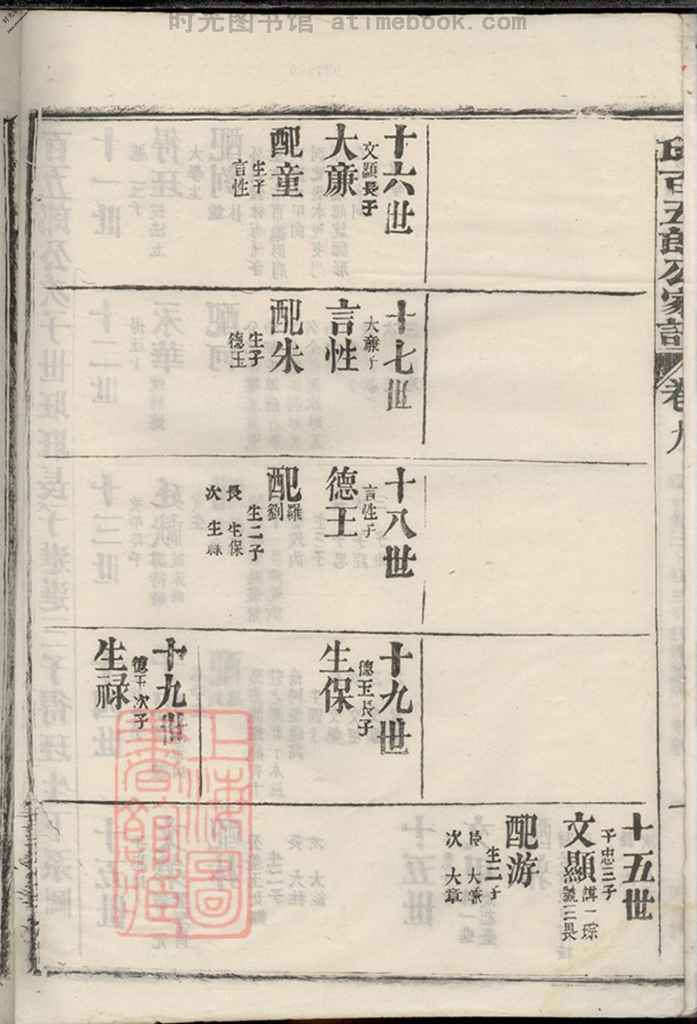 时光图书馆 - atimebook.com
邱百五郎公家譜 卷九
十六世
文顯長子
大亷
配童
生子
言性
十七世
大亷子
言性
配朱
生子
德玉
十八世
言性子
德玉
配羅
劉
生二子
長 生保
次 生祿
十九世
德玉長子
生保
十九世
德玉次子
生禄
十五世
于忠三子
文顯
諱一琮
號三畏
配游
生二子
長 大亷
次 大章
上海圖書館藏